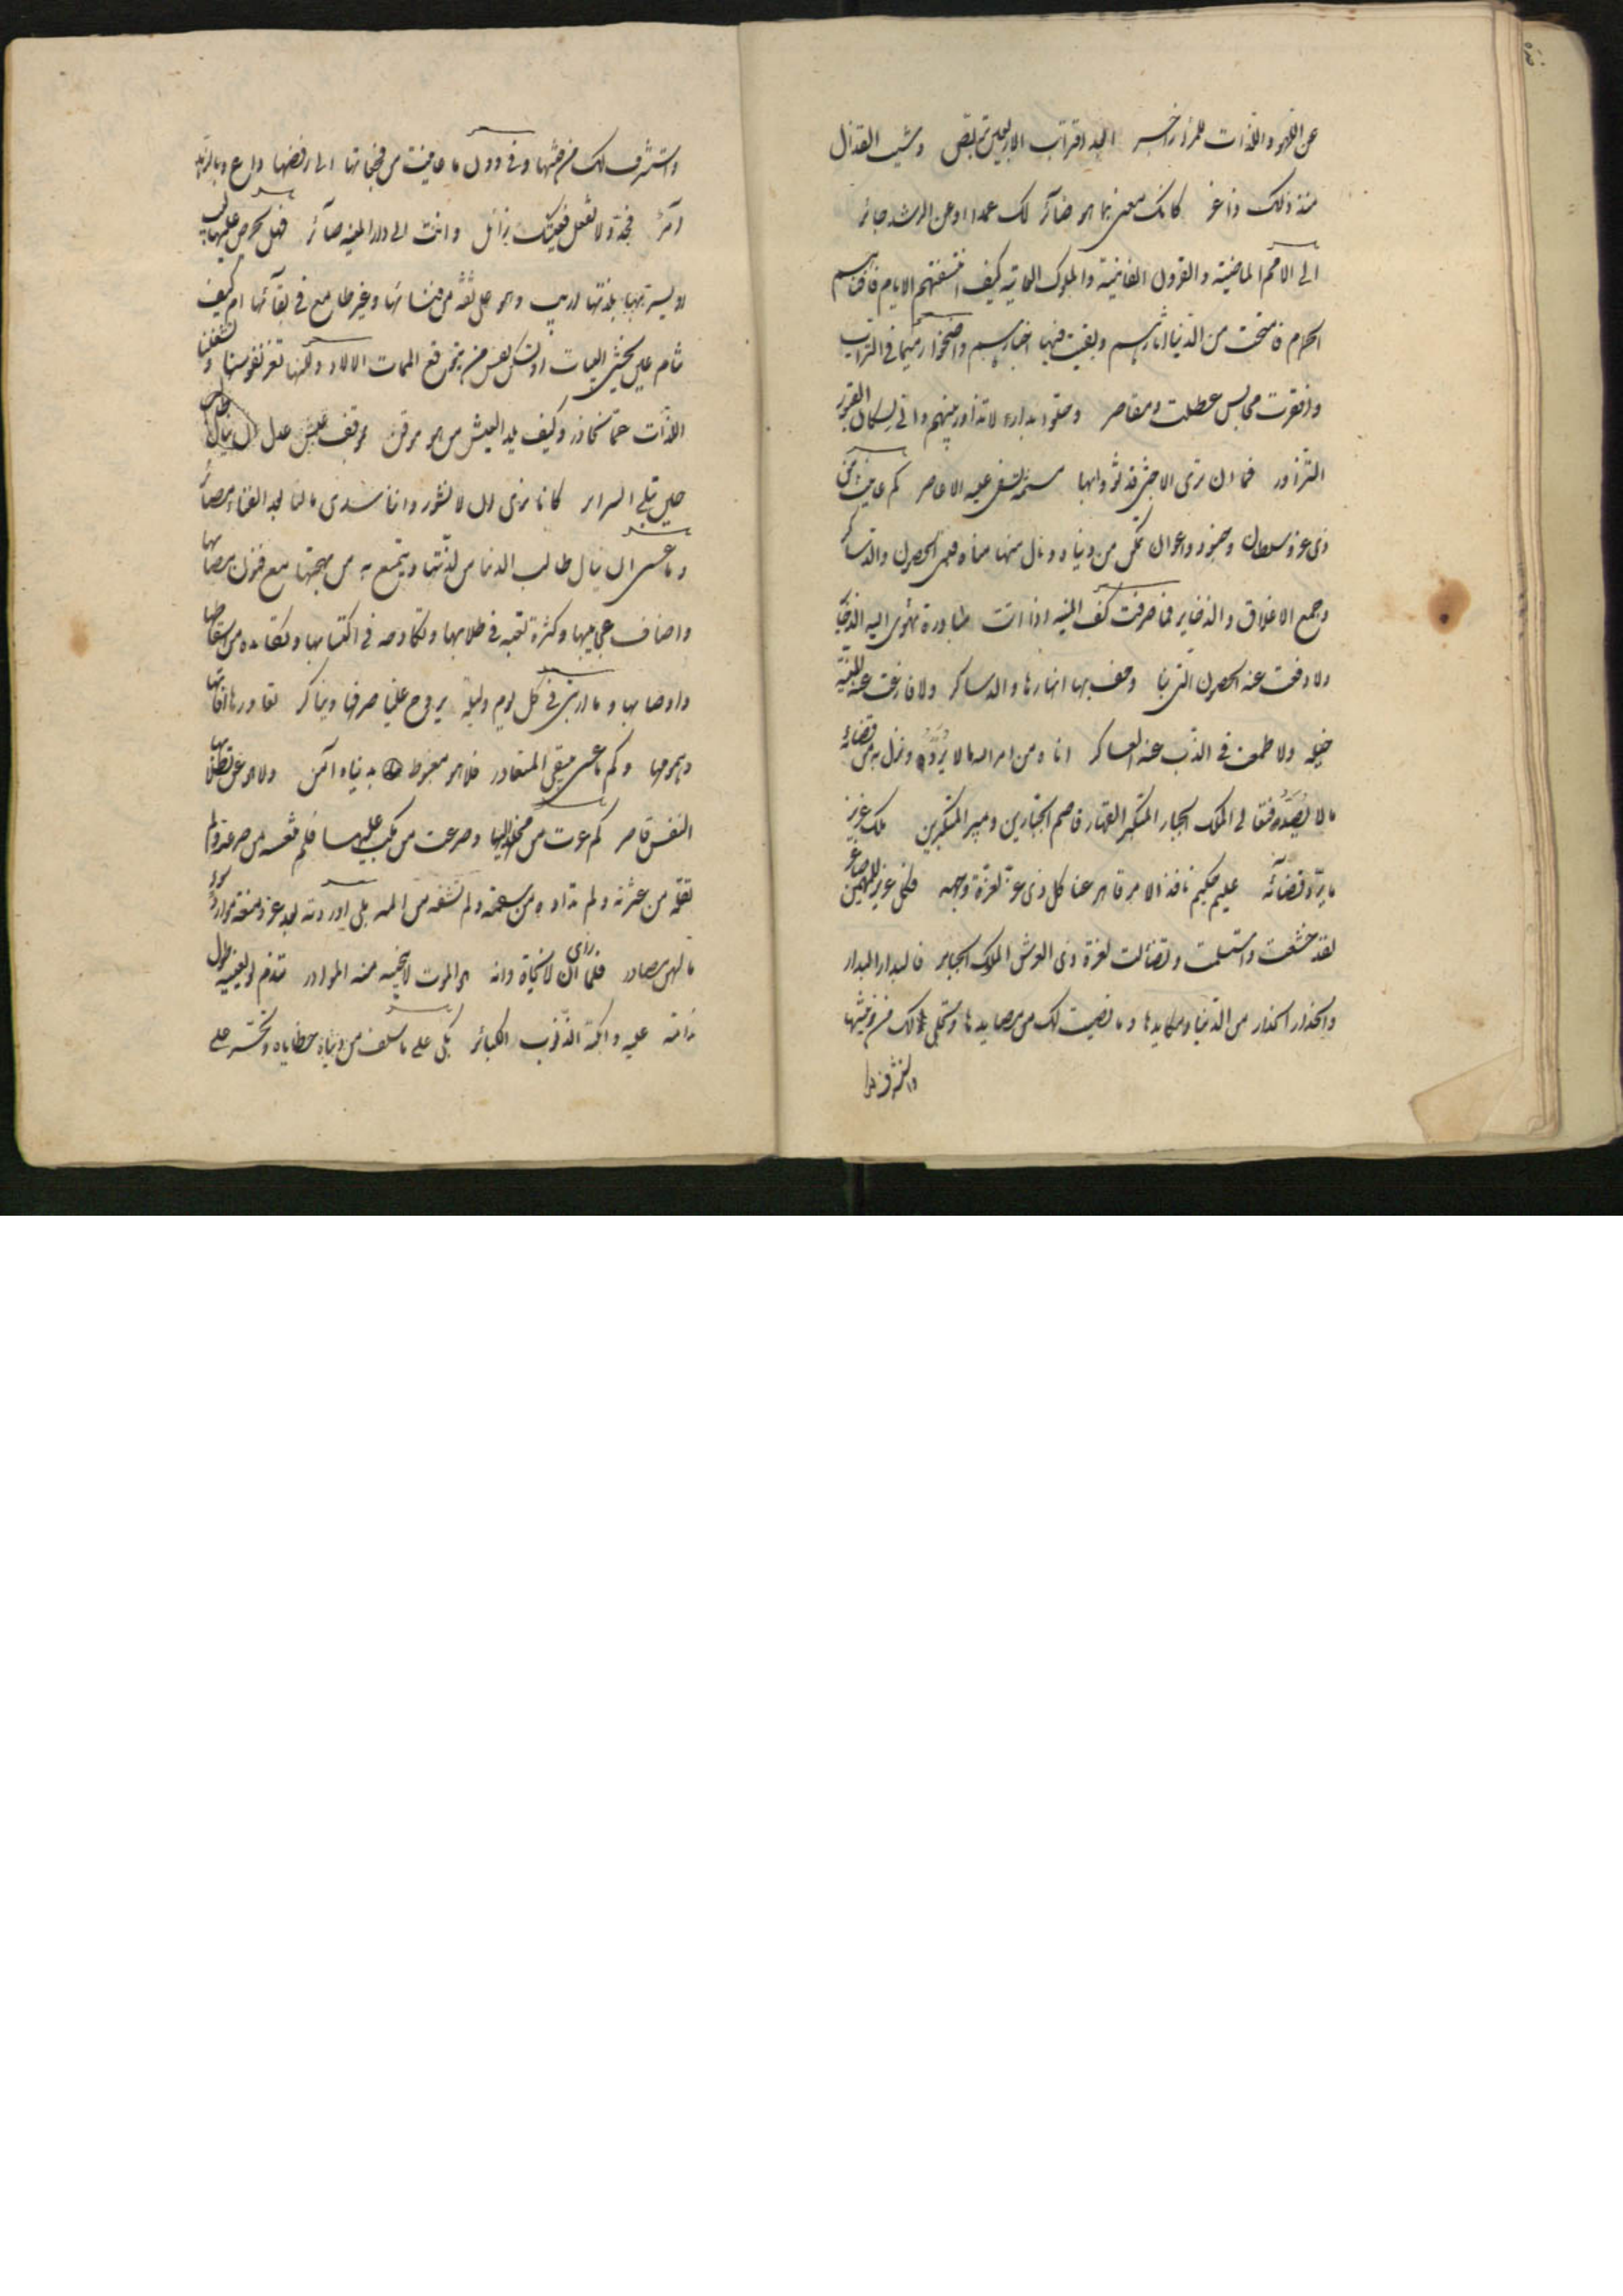 عن اللهو واللذات للمرء زاجر ابعد اقتراب الاربعين تربص وشيب القذال
منذ ذلك ذاعر كانك معنى بما هو ضائر لك عمدا او عن الرشد جائر
الى الامم الماضية والقرون الفانية والملوك العاتية كيف انتسفتهم الايام فافناهم
الحمام فامتحت من الدنيا اثارهم وبقيت فيها اخبارهم واضحوا رميما في التراب
واقفرت مجالس عطلت ومقاصر وحلوا بدار لا تزاور بينهم وانى لسكان القبور
التزاور فما ان ترى الا جثى قد ثووا بها مسنمة تسفى عليه الاعاصر كم عاينت من
ذى عز وسلطان وجنود واعوان تمكن من دنياه ونال منها مناه فبنى الحصون والدساكر
وجمع الاعلاق والذخاير فما صرفت كف المنية اذا اتت مبادرة تهوى اليه الذخاير
ولا دفعت عنه الحصون التى بنا وحف بها انهارها والدساكر ولا قارعت عنه المنية
خيله ولا طمعت في الذب عنه العساكر اتاه من امر الله ما لا يرد ونزل به من قضائه
ما لا يصد فتعالى الملك الجبار المتكبر القهار قاصم الجبارين ومبير المتكبرين مليك عزيز
ما يرد قضائه عليم حكيم نافذ الامر قاهر عنا كل ذى عز لعزة وجهه فكل عزيز للمهيمن صاغر
لقد خشعت واستسلمت وتضائلت لعزة ذى العرش الملوك الجبابر فالبدار البدار
والحذار الحذار من الدنيا ومكايدها وما نصبت لك من مصايدها وتحلى لك من زينتها
واستشرف لك من فتنتها وفى دون ما عاينت من فجعاتها الى رفضها داع وبالزهد
آمر فجد ولا تغفل فعيشك زائل وانت الى دار المنية صائر فهل يحرص عليها لبيب
او يسر بها بلذتها اريب وهو على ثقة من فنائها وغير طامع في بقائها ام كيف
تنام عين من يخشى البيات او تسكن نفس من يتوقع الممات الا لا ولكنا نغر نفوسنا وتشغلنا
اللذات عما نحاذر وكيف يلذ العيش من هو موقن بموقف عدل
حين تبلى السرائر كانا نرى ان لا نشور واننا سدى ما لنا بعد الفناء مصائر
وما عسى ان ينال طالب الدنيا من لذتها ويتمتع به من بهجتها مع فنون مصائبها
واصناف عجائبها وكثرة تعبه في طلابها وتكادحه في اكتسابها وتكابده من اسقامها
واوصابها وما اربتى في كل يوم وليلة يروح علينا صرفها ويباكر تعاورها آفاتها
وهمومها وكم ما عسى يبقى المتعاور فلا هو مغبوط بدنياه آمن ولا هو عن تطلابها
النفس قاصر كم غرت من مخلد اليها وصرعت من مكب عليها فلم تنعشه من صرعته ولم
تقله من عثرته ولم تداوه من سقمه ولم تشفه من المه بلى اوردته بعد عز ومنعة موارد سوء
ما لهن مصادر فلما راى ان لا نجاة وانه هو الموت لا ينجيه منه الموازر تندم لو يغنيه طول
ندامة عليه وابكته الذنوب الكبائر بكى على ما سلف من خطاياه وتحسر على